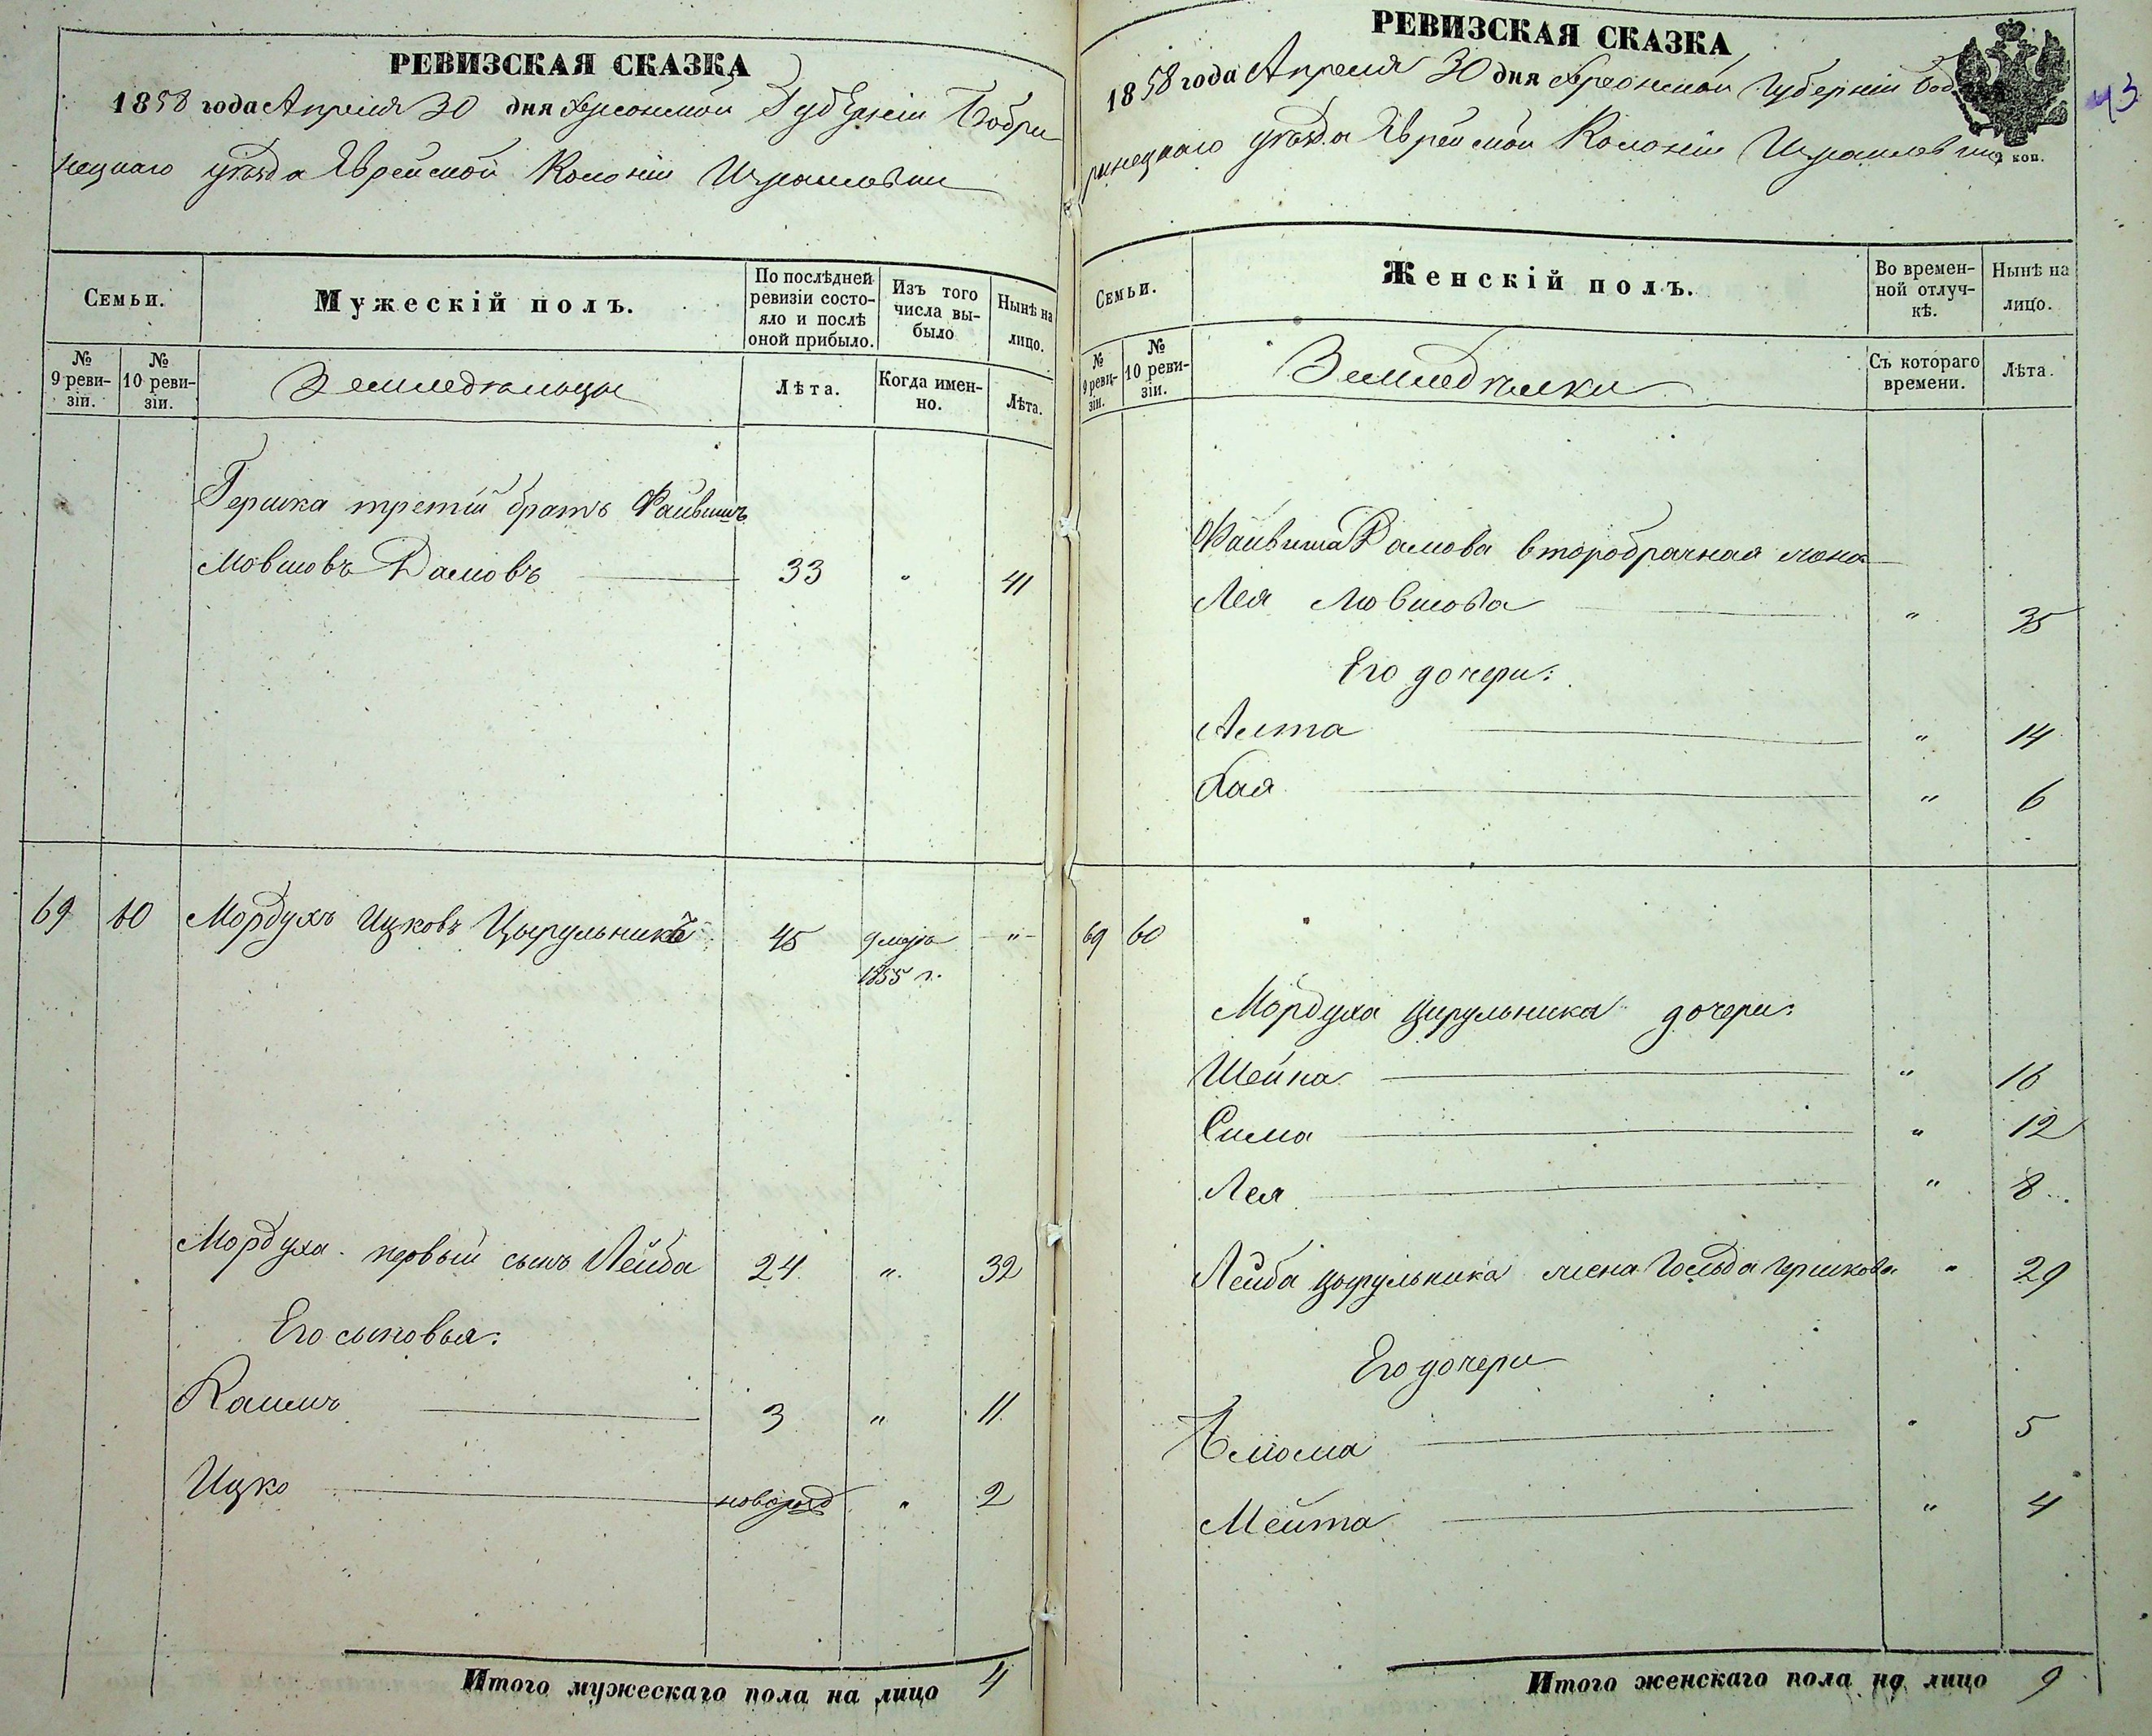 РЕВИЗСКАЯ СКАЗКА
1858 года Апреля 30 дня Херсонской Губерніи Бобри
нецкаго уѣзда Еврейской Колоніи Израилевки
Семьи.
Мужескій полъ.
По послѣдней ревизіи состо-
яло и послѣ оной прибыло.
Изъ того числа вы-
было
Нынѣ на лицо.
№ 9 реви-
зіи.
№ 10 реви-
зіи.
Земледѣльцы
Лѣта.
Когда имен-
но.
Лѣта.
Гершка третій братъ Файвишъ
Мовшовъ 33 " 41
69 60 Мордухъ Ицковъ Цырульникъ 45 1855 г. "
Мордуха первый сынъ Лейба 24 " 32
Его сыновья:
3 " 11
Ицко новорожд " 2
Итого мужескаго пола на лицо 4
РЕВИЗСКАЯ СКАЗКА
1858 года Апреля 30 дня Херсонской Губерніи Боб
ринецкаго уѣзда Еврейской Колоніи Израилевки
коп.
43
Семьи.
Женскій полъ.
Во времен-
ной отлуч-
кѣ.
Нынѣ на лицо.
№ 9 реви-
зіи.
№ 10 реви-
зіи.
Земледѣлки
Съ котораго времени.
Лѣта.
Файвиша второбрачная жена
Лея Мовшова " 35
Его дочери:
" 14
Хая " 6
69 60
Мордуха Цирульника дочери:
Шейна " 16
Сима " 12
Лея " 8
Лейба Цырульника жена Гольда Гершкова " 29
Его дочери
" 5
Мейта " 4
Итого женскаго пола на лицо 9